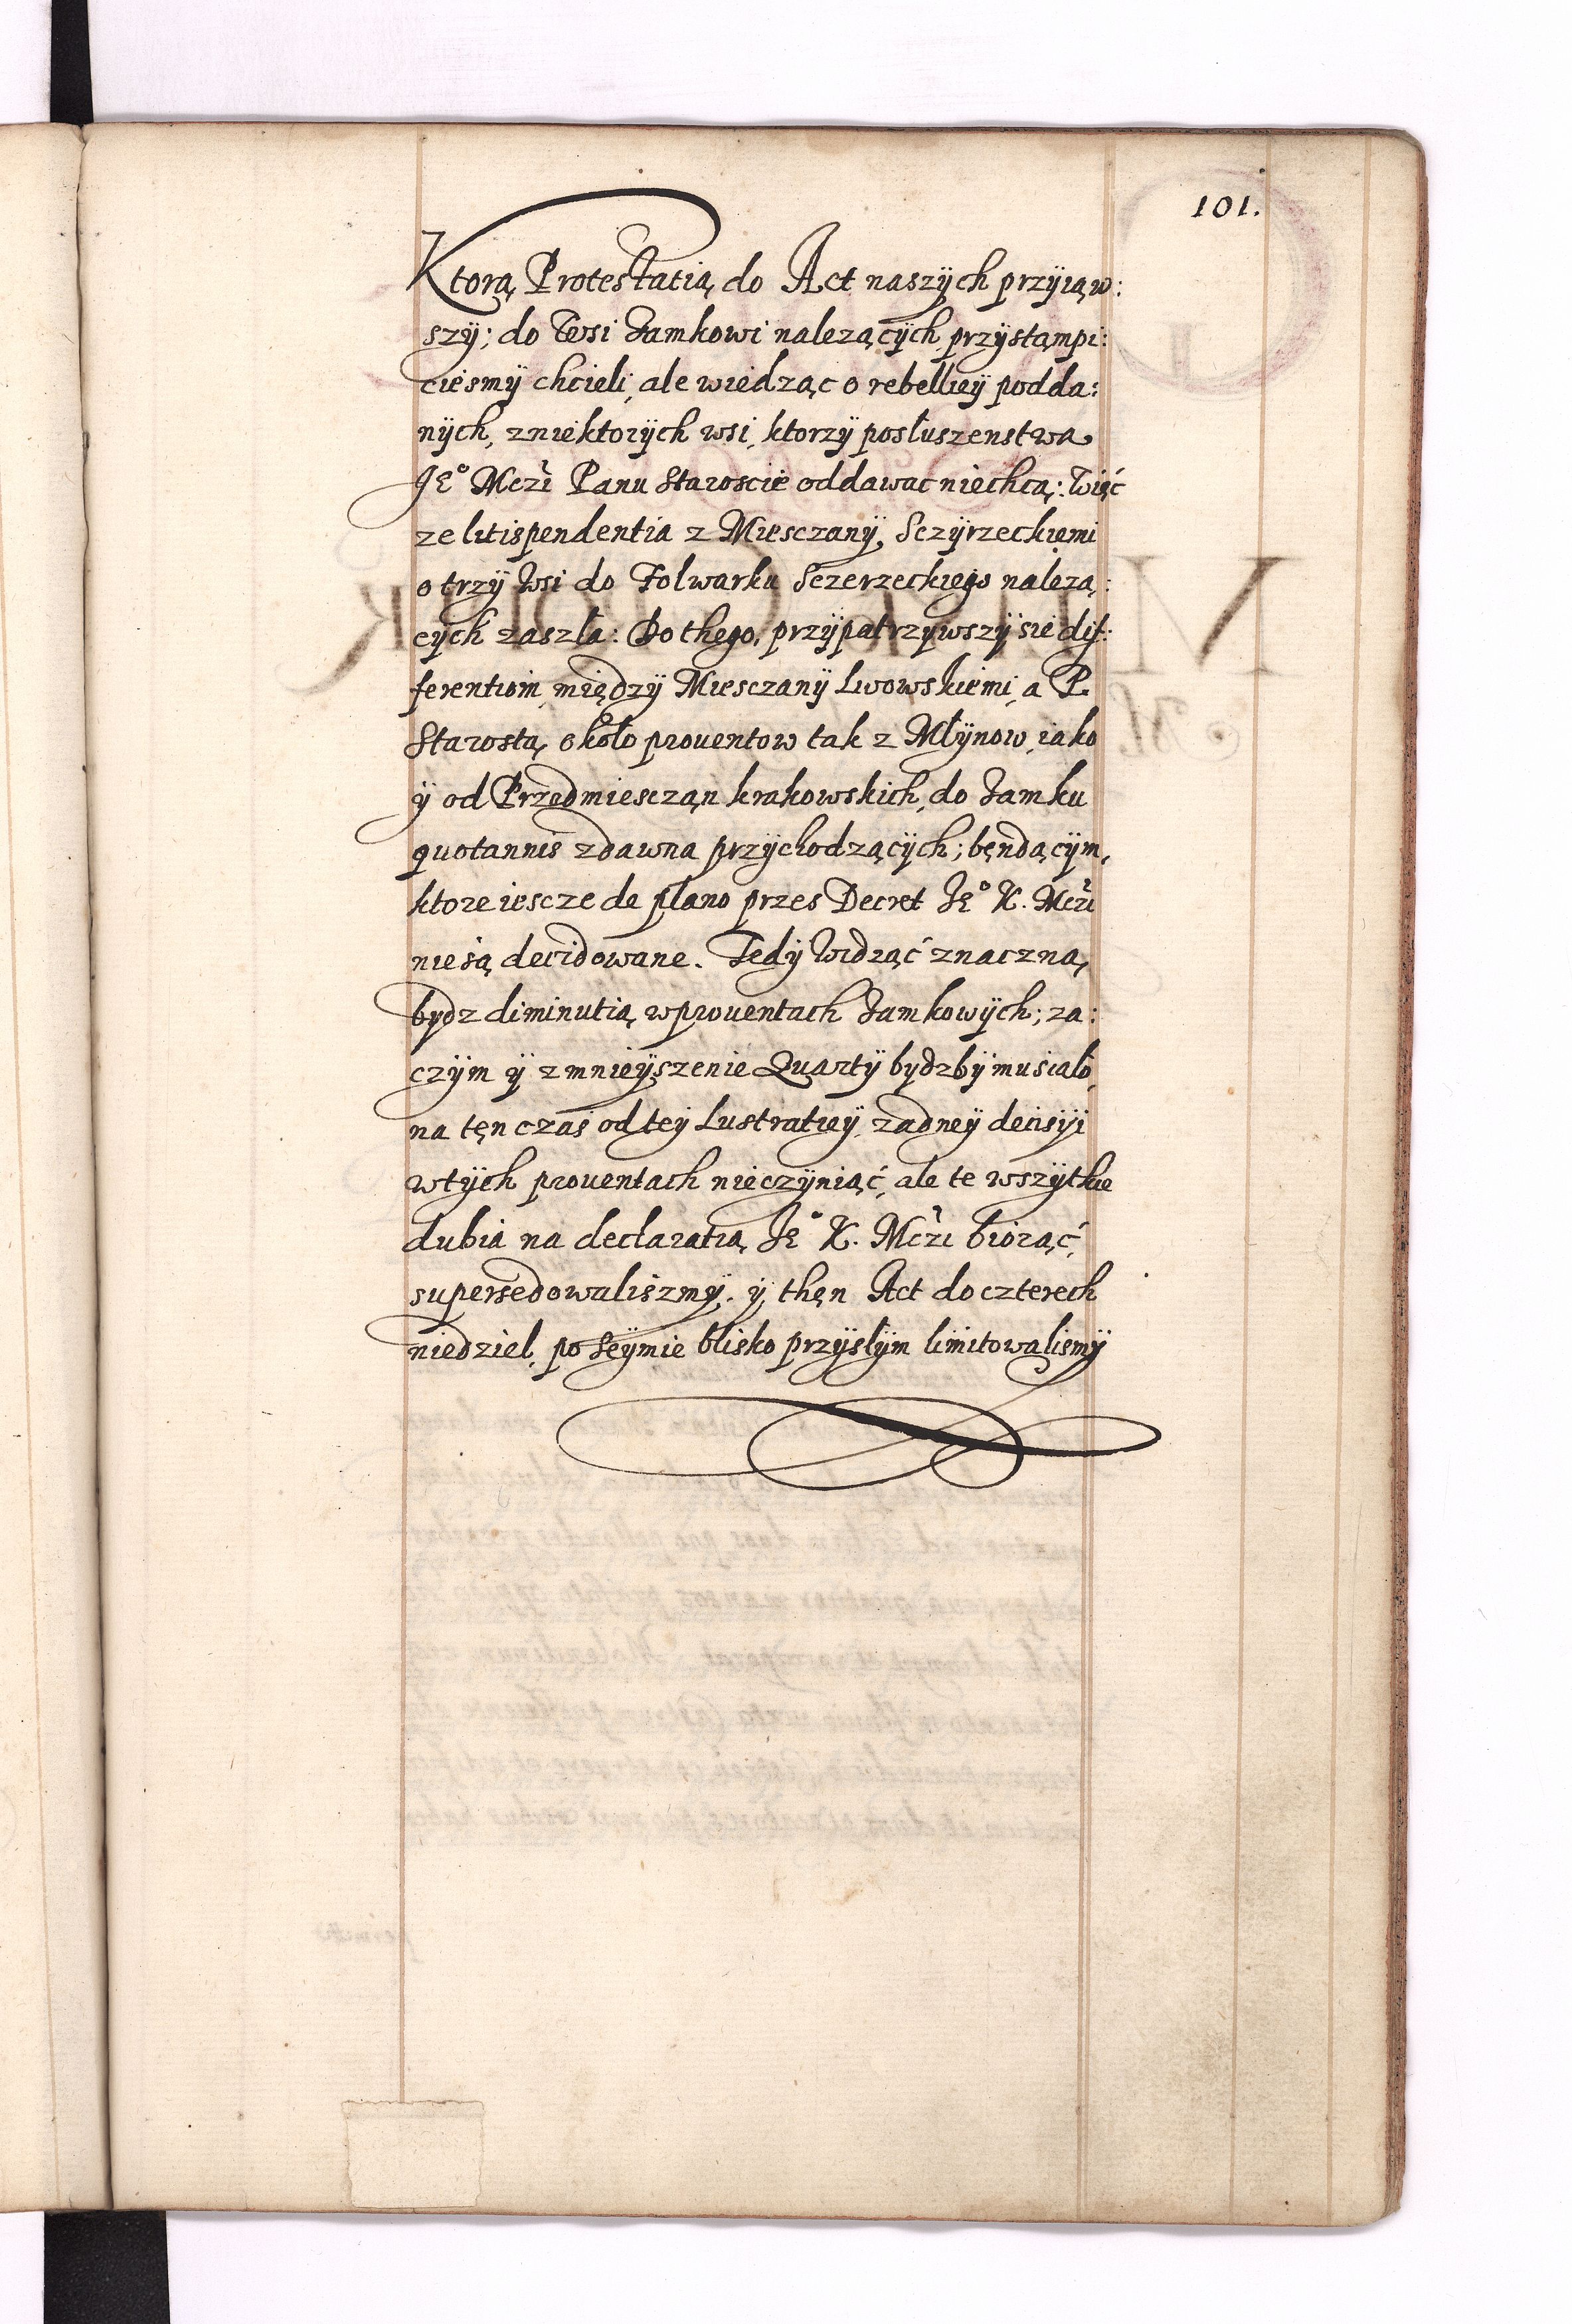 101.
Ktorą Protestatią do Act naszÿch przÿiąw:
szÿ; do Wsi Zamkowi nalezącÿch przÿstąmpi:
ciesmÿ chcieli, ale wiedząc o rebelliey podda:
nÿch, z niektorÿch wsi, ktorzÿ posłuszenstwa
Je° Mczi Panu Staroscie oddawac niechcą: Więć
ze litispendentia z Miesczanÿ Sczÿrzeckiemi
o trzÿ Wsi do Folwarku Sczerzeckiego nalezą:
cÿch zaszła: Do thego, przÿpatrzÿwszÿ sie dif:
ferentiom międzÿ Miesczanÿ Lwowskiemi, a P.
Starostą, około prouentow tak z Młÿnow, iako
ÿ od Przedmiescząn krakowskich, do Zamku
quotannis zdawna przÿchodzącÿch; bęndącÿm,
ktore iescze de plano przes Decret Je° K. Mczi
niesą decidowane. Tedÿ Widząć znaczną
bÿdz diminutią w prouentach Zamkowÿch; za:
czÿm ÿ zmnieÿszenie Quartÿ bÿdzbÿ musiało,
na tęn czas od teÿ Lustratieÿ, zadneÿ decisÿi
w tÿch prouentach nieczÿniąć, ale te wszÿtkie
dubia na declaratią Je° K. Mczi biorąć,
supersedowaliszmÿ. ÿ thęn Act do czterech
niedziel, po Seÿmie blisko przÿsłÿm limitowalismÿ